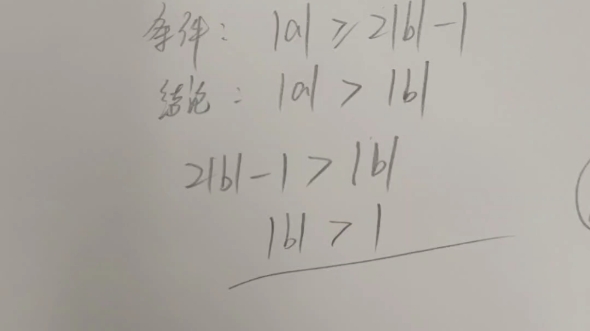 条件: |a| ≥ 2|b|-1
结论: |a| > |b|
2|b|-1 > |b|
|b| > 1